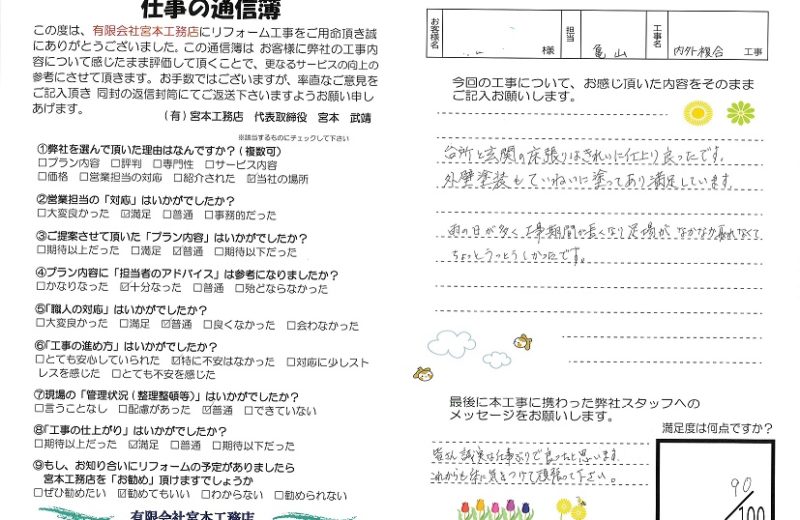 仕事の通信簿
この度は、有限会社宮本工務店にリフォーム工事をご用命頂き誠
にありがとうございました。この通信簿は お客様に弊社の工事内
容について感じたまま評価して頂くことで、更なるサービスの向上の
参考にさせて頂きます。お手数ではございますが、率直なご意見を
ご記入頂き 同封の返信封筒にてご返送下さいますようお願い申し
あげます。
（有）宮本工務店 代表取締役 宮本 武靖
※該当するものにチェックして下さい
①弊社を選んで頂いた理由はなんですか？（複数可）
□プラン内容 □評判 □専門性 □サービス内容
□価格 □営業担当の対応 □紹介された ☑当社の場所
②営業担当の「対応」はいかがでしたか？
□大変良かった ☑満足 □普通 □事務的だった
③ご提案させて頂いた「プラン内容」はいかがでしたか？
□期待以上だった □満足 ☑普通 □期待以下だった
④プラン内容に「担当者のアドバイス」は参考になりましたか？
□かなりなった ☑十分なった □普通 □殆どならなかった
⑤「職人の対応」はいかがでしたか？
□大変良かった □満足 ☑普通 □良くなかった □会わなかった
⑥「工事の進め方」はいかがでしたか？
□とても安心していられた ☑特に不安はなかった □対応に少しスト
レスを感じた □とても不安を感じた
⑦現場の「管理状況（整理整頓等）」はいかがでしたか？
□言うことなし □配慮があった ☑普通 □できていない
⑧「工事の仕上がり」はいかがでしたか？
□期待以上だった ☑満足 □普通 □期待以下だった
⑨もし、お知り合いにリフォームの予定がありましたら
宮本工務店を「お勧め」頂けますでしょうか
□ぜひ勧めたい ☑勧めてもいい □わからない □勧められない
有限会社宮本工務店
お客様名 様 担当 亀山 工事名 内外複合 工事
今回の工事について、お感じ頂いた内容をそのまま
ご記入お願いします。
台所と玄関の床張りはきれいに仕上り良ったです。
外壁塗装もていねいに塗ってあり満足しています。
雨の日が多く工事期間が長くなり足場がなかなか取れなくて
ちょっとうっとうしかったです。
最後に本工事に携わった弊社スタッフへの
メッセージをお願いします。
皆さん誠実な仕事ぶりで良ったと思います。
これからも体に気をつけて頑張って下さい。
満足度は何点ですか？
90/100